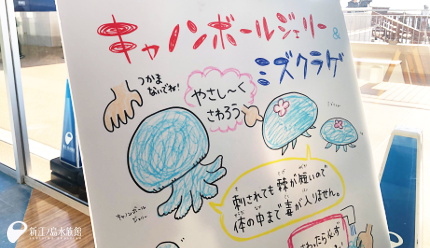 キャノンボールジェリー&
ミズクラゲ
つかま
ないでね!
やさし〜く
さわろう
キャノンボール
ジェリー
刺されても棘が短いので
体の中まで毒が入りません。
さわったら必ず
新江ノ島水族館